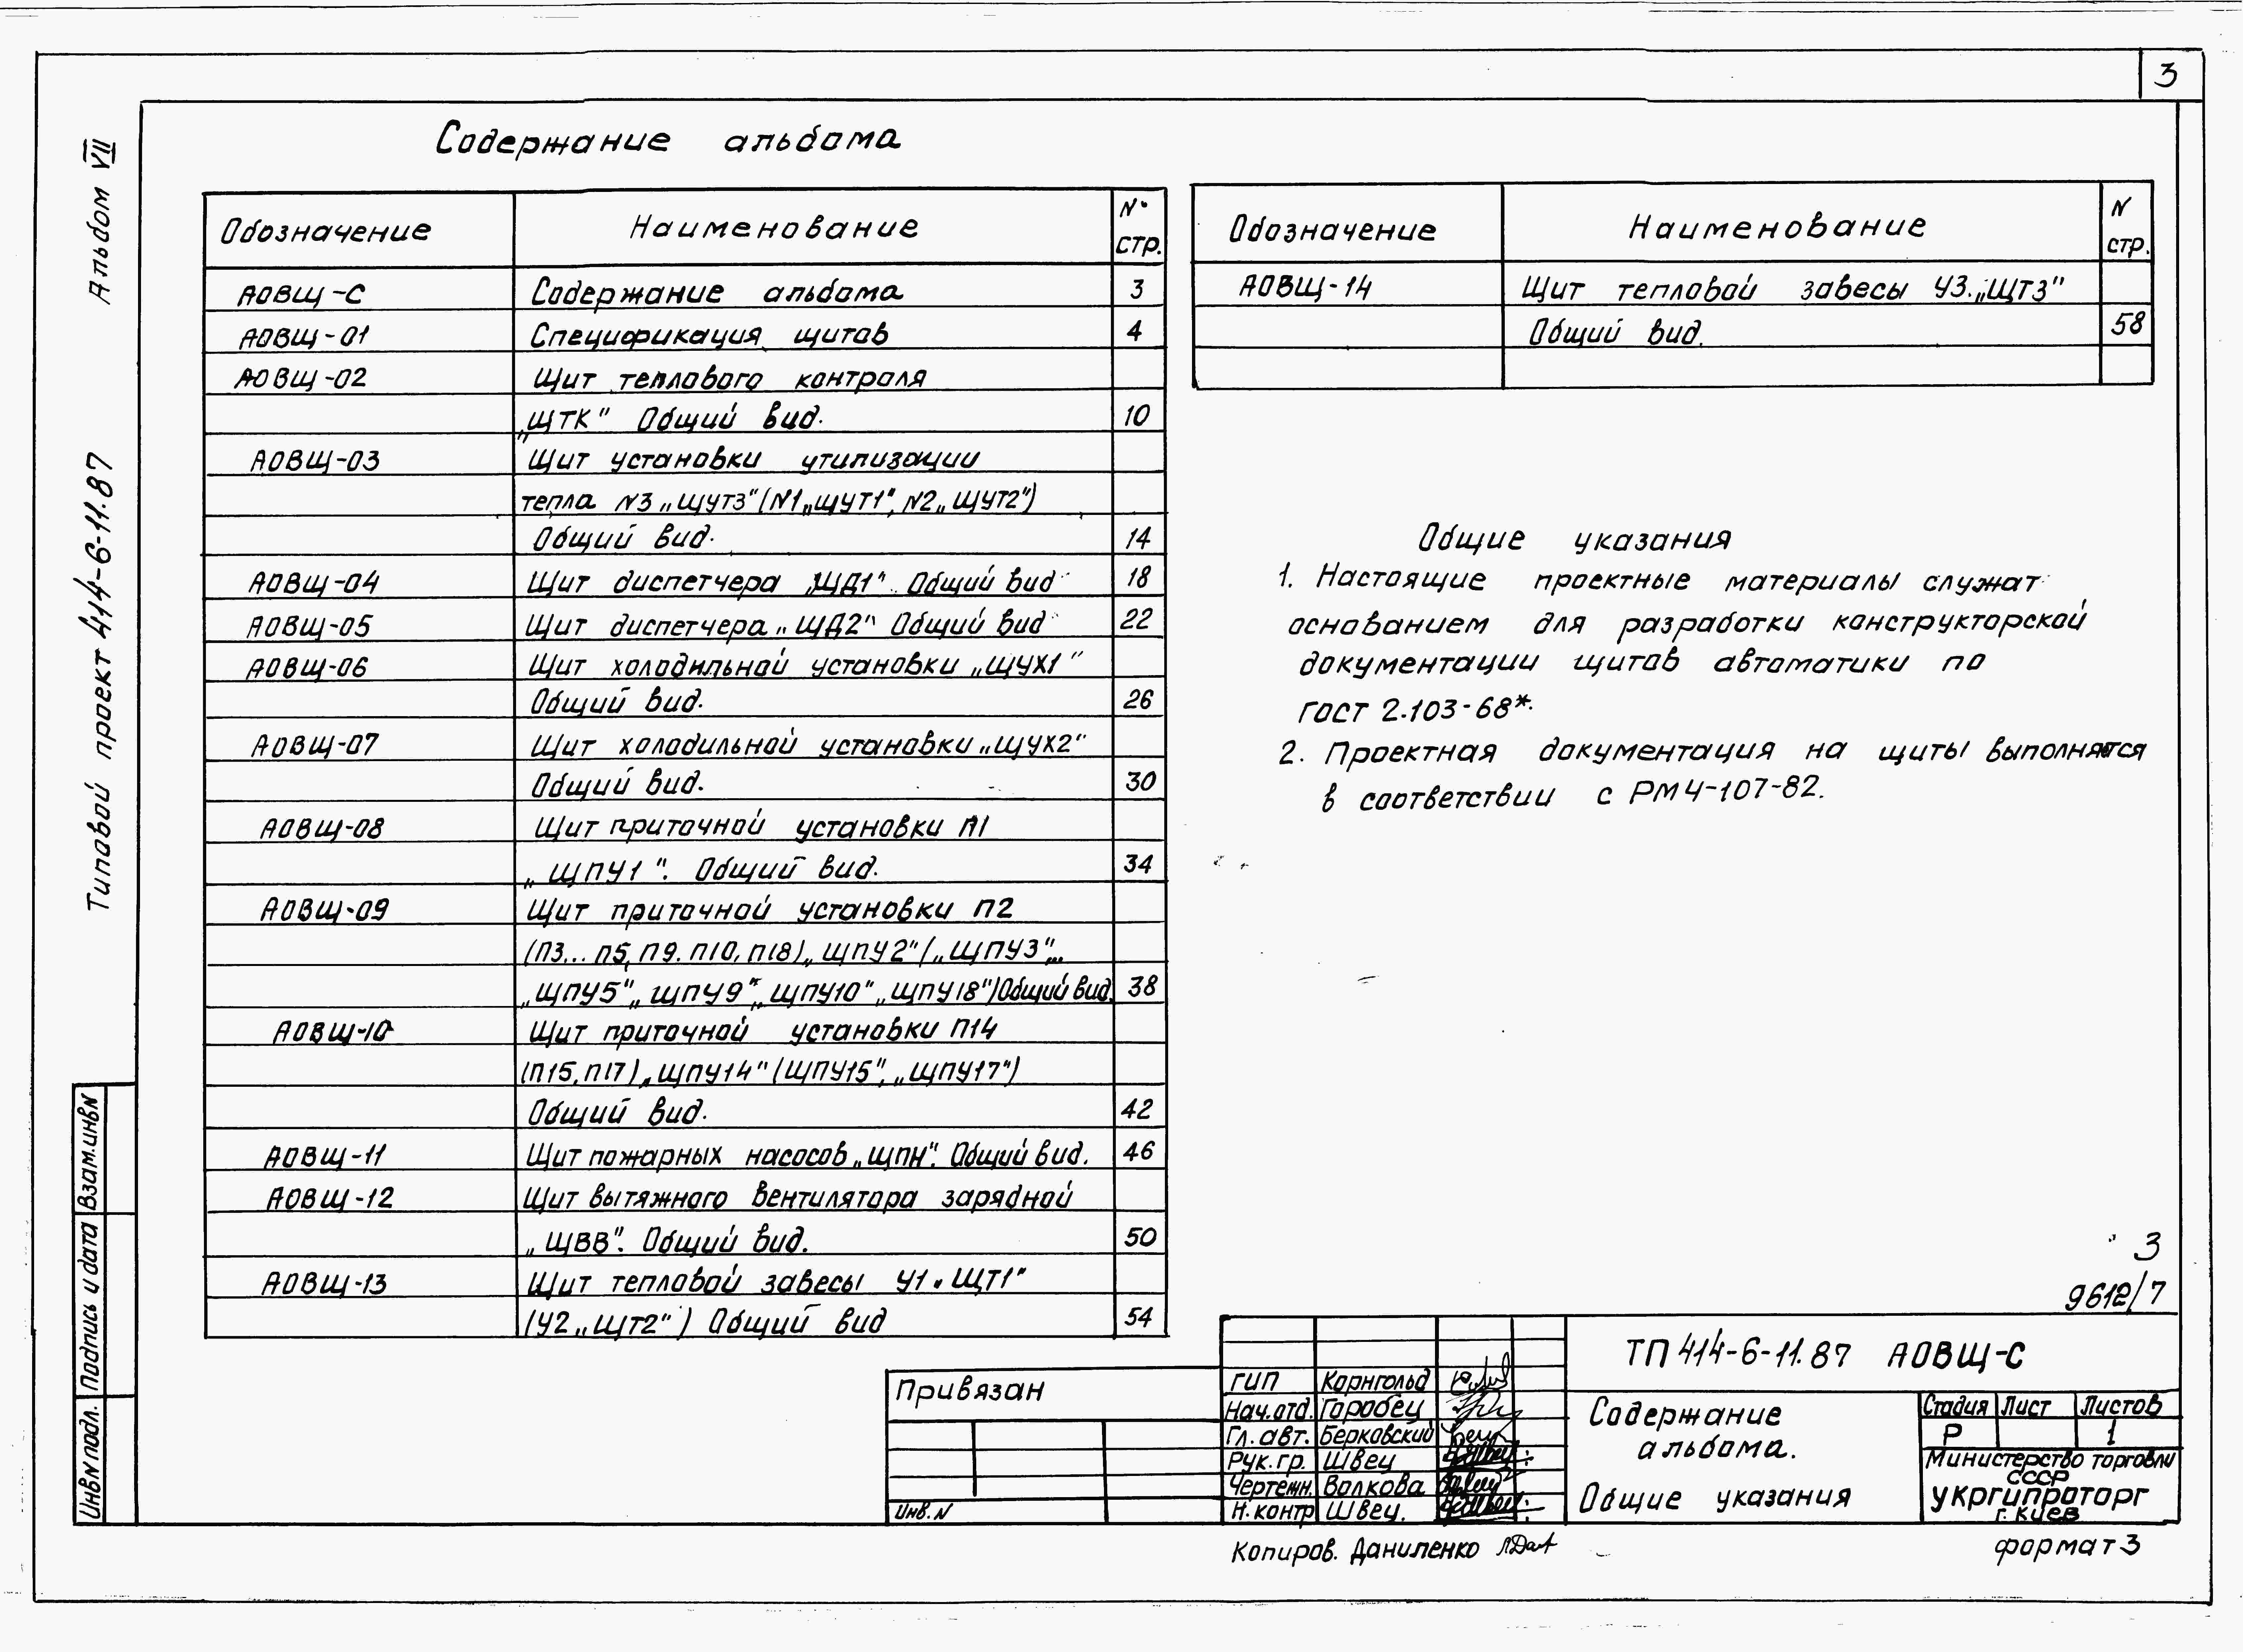 3
Альбом VII
Типовой проект 414-6-11.87
Содержание альбома
Обозначение Наименование № стр.
АОВЩ-С Содержание альбома 3
АОВЩ-01 Спецификация щитов 4
АОВЩ-02 Щит теплового контроля
„ЩТК" Общий вид. 10
АОВЩ-03 Щит установки утилизации
тепла N3 „ЩУТ3" (N1 „ЩУТ1", N2 „ЩУТ2")
Общий вид. 14
АОВЩ-04 Щит диспетчера „ЩД1". Общий вид 18
АОВЩ-05 Щит диспетчера „ЩД2" Общий вид 22
АОВЩ-06 Щит холодильной установки „ЩУХ1"
Общий вид. 26
АОВЩ-07 Щит холодильной установки „ЩУХ2"
Общий вид. 30
АОВЩ-08 Щит приточной установки П1
„ЩПУ1". Общий вид. 34
АОВЩ-09 Щит приточной установки П2
(П3... П5, П9. П10, П18) „ЩПУ2" („ЩПУ3"...
„ЩПУ5", „ЩПУ9", „ЩПУ10" „ЩПУ18") Общий вид. 38
АОВЩ-10 Щит приточной установки П14
(П15, П17) „ЩПУ14" (ЩПУ15", „ЩПУ17")
Общий вид. 42
АОВЩ-11 Щит пожарных насосов „ЩПН". Общий вид. 46
АОВЩ-12 Щит вытяжного вентилятора зарядной
„ЩВВ". Общий вид. 50
АОВЩ-13 Щит тепловой завесы У1 „ЩТ1"
(У2 „ЩТ2") Общий вид 54
Обозначение Наименование N стр.
АОВЩ-14 Щит тепловой завесы У3. „ЩТ3"
Общий вид. 58
Общие указания
1. Настоящие проектные материалы служат
основанием для разработки конструкторской
документации щитов автоматики по
ГОСТ 2.103-68*.
2. Проектная документация на щиты выполнятся
в соответствии с РМ4-107-82.
3
9612/7
Взам.инвN
Подпись и дата
ИнвN подл.
Привязан
Инв.N
ГИП Корнгольд
Нач.отд. Горобец
Гл. авт. Берковский
Рук.гр. Швец
Чертежн. Волкова
Н.контр Швец.
ТП 414-6-11.87 АОВЩ-С
Содержание
альбома.
Общие указания
Стадия Лист Листов
Р 1
Министерство торговли
СССР
УКРГИПРОТОРГ
г. Киев
Копиров. Даниленко
формат 3